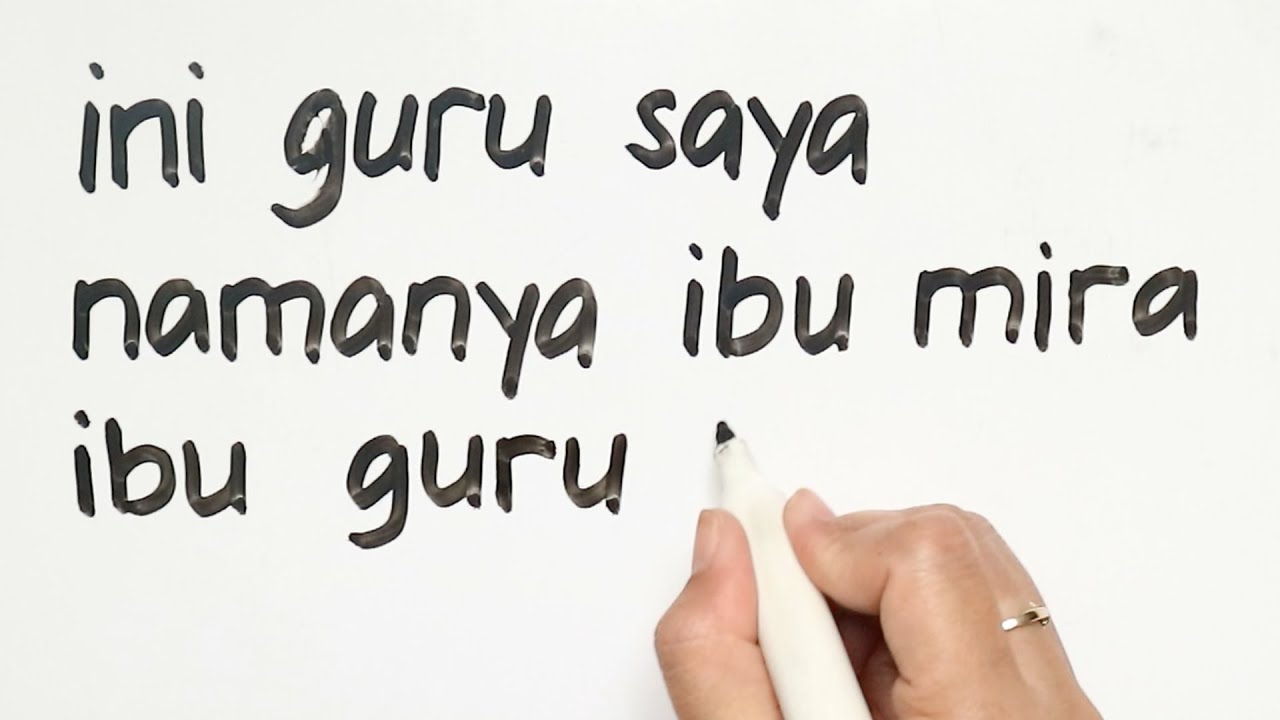 ini guru saya
namanya ibu mira
ibu guru